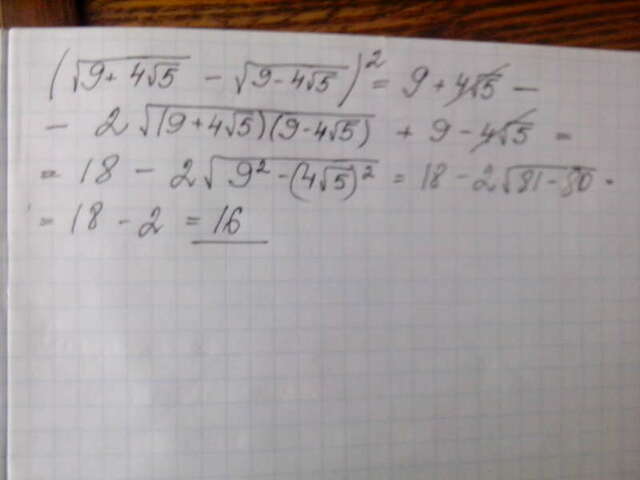 (√(9+4√5) - √(9-4√5))² = 9+4√5 -
- 2√((9+4√5)(9-4√5)) + 9-4√5 =
= 18 - 2√(9²-(4√5)²) = 18-2√(81-80) =
= 18-2 = 16